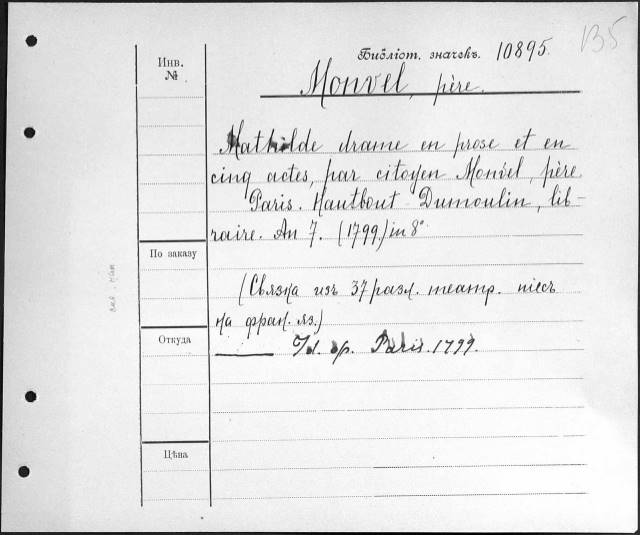 Инв.
№
Библіот. значекъ. 10895.
135
Monvel, père.
Mathilde drame en prose et en
cinq actes, par citoyen Monvel, père
Paris. Hautbout Dumoulin, lib-
raire. An 7. (1799.) in 8°
По заказу
(Связка изъ 37 разл. театр. піесъ
на фран. яз.)
Откуда
Paris. 1799.
Цѣна